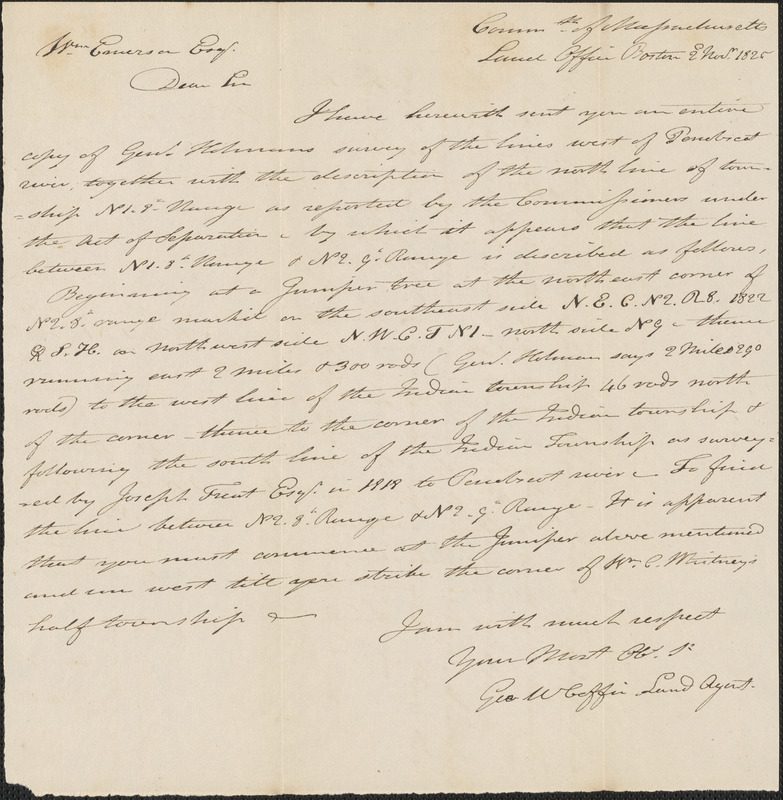 Commth of Massachusetts
Wm Emerson Esqr. Land Office Boston 2 Novr. 1825
Dear Sir
I have herewith sent you an entire
copy of Genl. Holmans survey of the lines west of Penobscot
river, together with the description of the north line of town-
=ship No 1. 8th Range as reported by the Commissioners under
the Act of Separation & by which it appears that the line
between No 1. 8th Range & No 2. 9th Range is described as follows,
Beginning at a Juniper tree at the northeast corner of
No 2. 8th range marked on the southeast side N. E. C. No 2. R 8. 1822
& S. H. on northwest side N. W. C. T No 1 - north side No 9 - thence
running east 2 miles & 300 rods (Genl. Holman says 2 Miles 290
rods) to the west line of the Indian township 46 rods north
of the corner - thence to the corner of the Indian township &
following the south line of the Indian Township as survey=
=ed by Joseph Treat Esqr. in 1818 to Penobscot river - To find
the line between No 2. 8th Range & No 2. 9th Range - It is apparent
that you must commence at the Juniper above mentioned
and run west till you strike the corner of Wm. C. Whitney's
half township
I am with much respect
Your Most Ob. St
Geo W Coffin Land Agent.